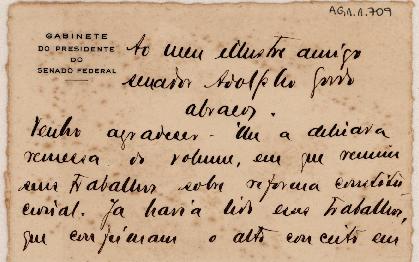 AG.1.1.709
GABINETE
DO PRESIDENTE
DO
SENADO FEDERAL
Ao meu illustre amigo
senador Adolpho Gordo
abraços.
Venho agradecer-lhe a
remessa do volume, em que reuniu
seus trabalhos sobre reforma constitu
cional. Já havia lido esses trabalhos,
que confirmam o alto conceito em